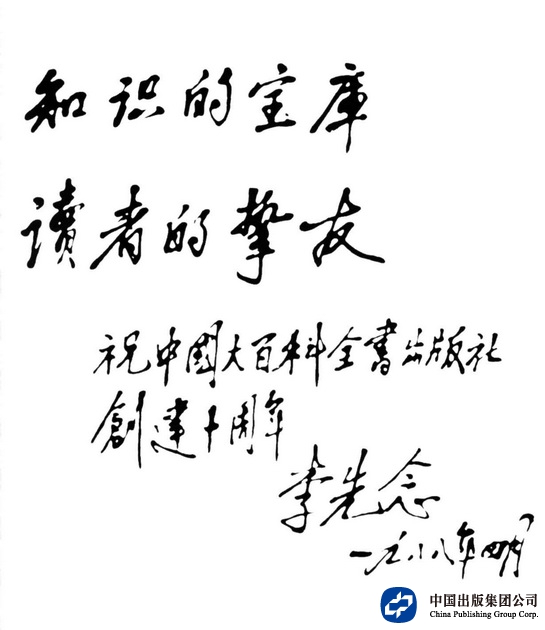 知识的宝庫
讀者的摯友
祝中國大百科全書出版社
創建十周年
李先念
一九八八年四月
中国出版集团公司
China Publishing Group Corp.